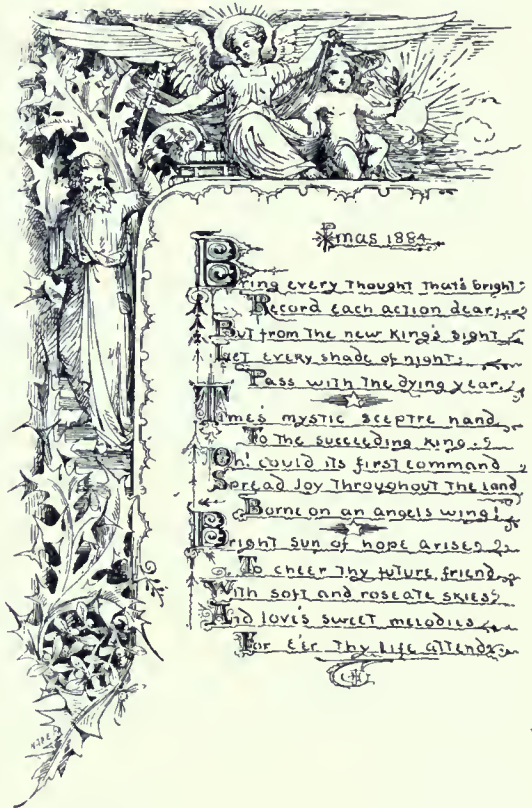 Xmas 1884
Bring every thought that's bright
Record each action dear;
But from the new King's sight
Let every shade of night
Pass with the dying year.
Time's mystic sceptre hand
To the succeeding King:
Oh! could its first command
Spread Joy throughout the land
Borne on an angels wing!
Bright sun of hope arise
To cheer thy future, friend,
With soft and roseate skies
And love's sweet melodies
For e'er thy life attend